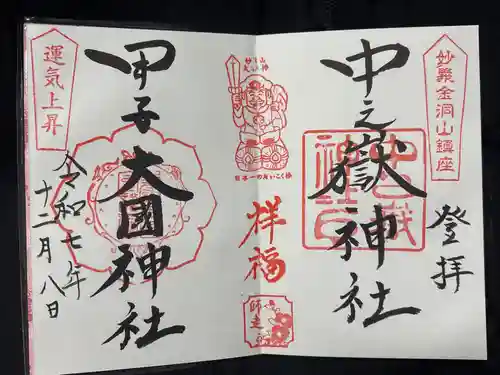 妙義金洞山鎮座
登拝
中之嶽神社
中之嶽
神社印
妙義山
大黒神
日本一のだいこく様
祥福
師走
甲子大國神社
運気上昇
令和七年
十二月八日